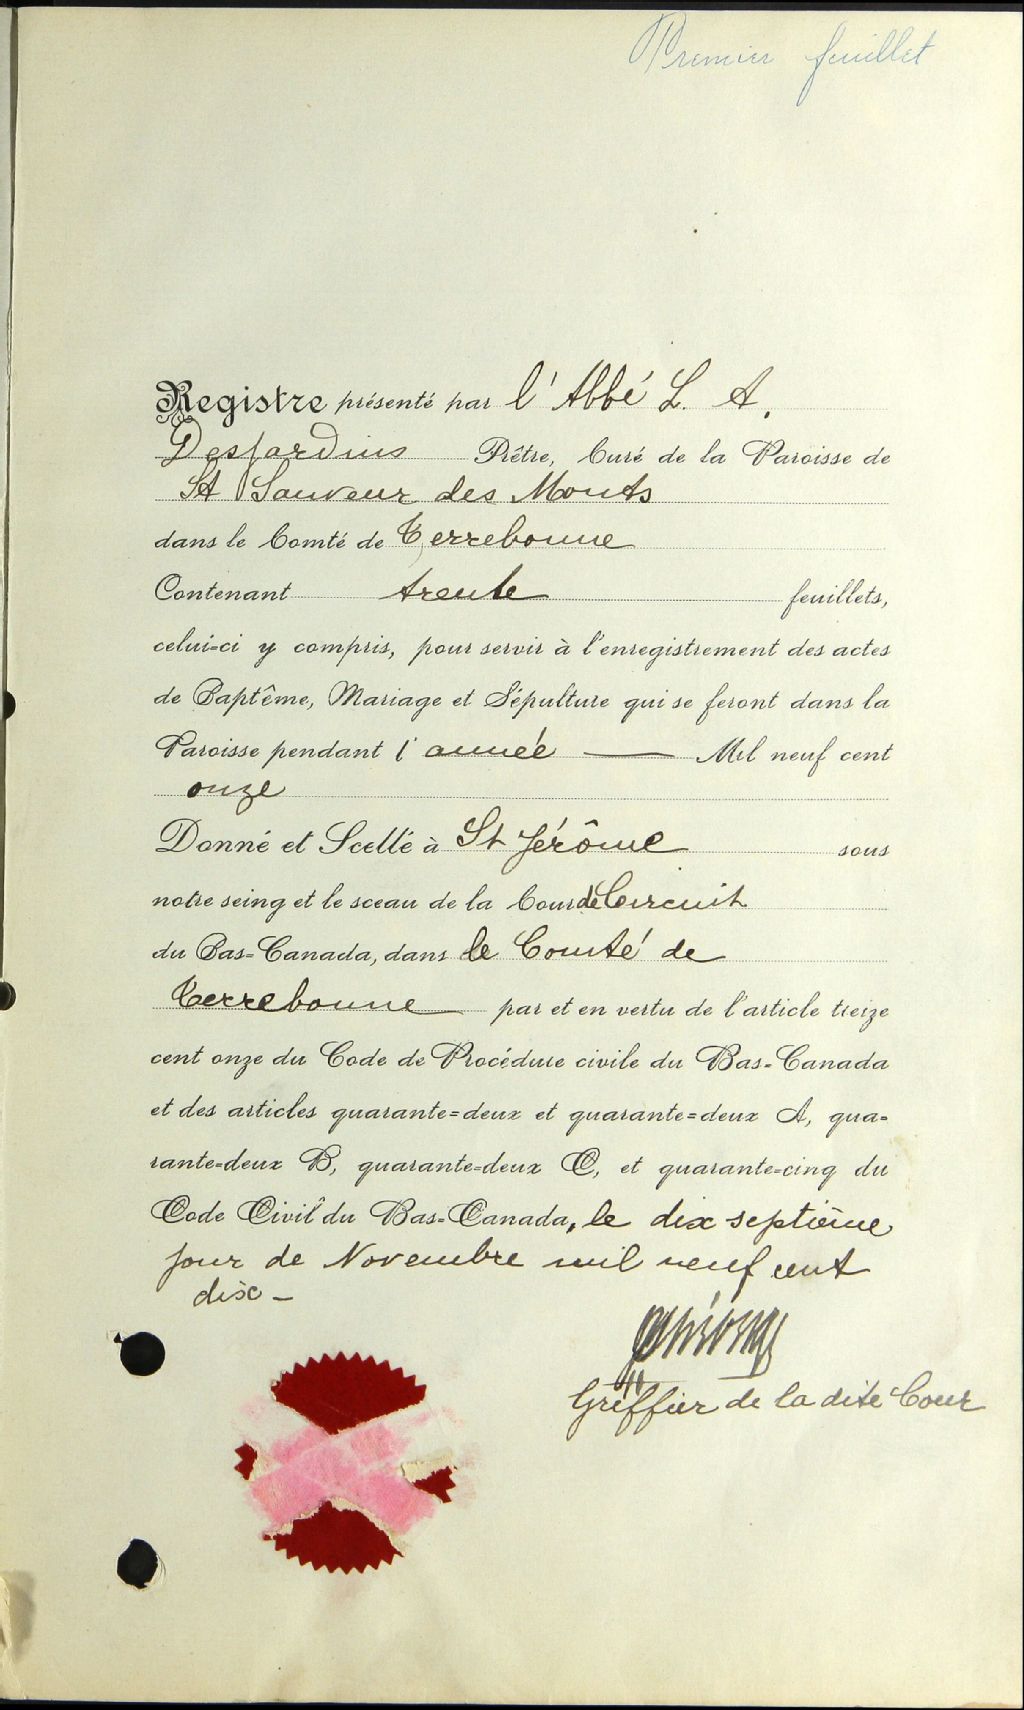 Premier feuillet
Registre présenté par l'Abbé L. A.
Desjardins Prêtre, Curé de la Paroisse de
St Sauveur des Monts
dans le Comté de Terrebonne
Contenant trente feuillets,
celui-ci y compris, pour servir à l'enregistrement des actes
de Baptême, Mariage et Sépulture qui se feront dans la
Paroisse pendant l'année — Mil neuf cent
onze
Donné et Scellé à St Jérôme sous
notre seing et le sceau de la Cour de Circuit
du Bas-Canada, dans le Comté de
Terrebonne par et en vertu de l'article treize
cent onze du Code de Procédure civile du Bas-Canada
et des articles quarante-deux et quarante-deux A, qua-
rante-deux B, quarante-deux C, et quarante-cinq du
Code Civil du Bas-Canada, le dix septième
jour de Novembre mil neuf cent
dix -
Greffier de la dite Cour